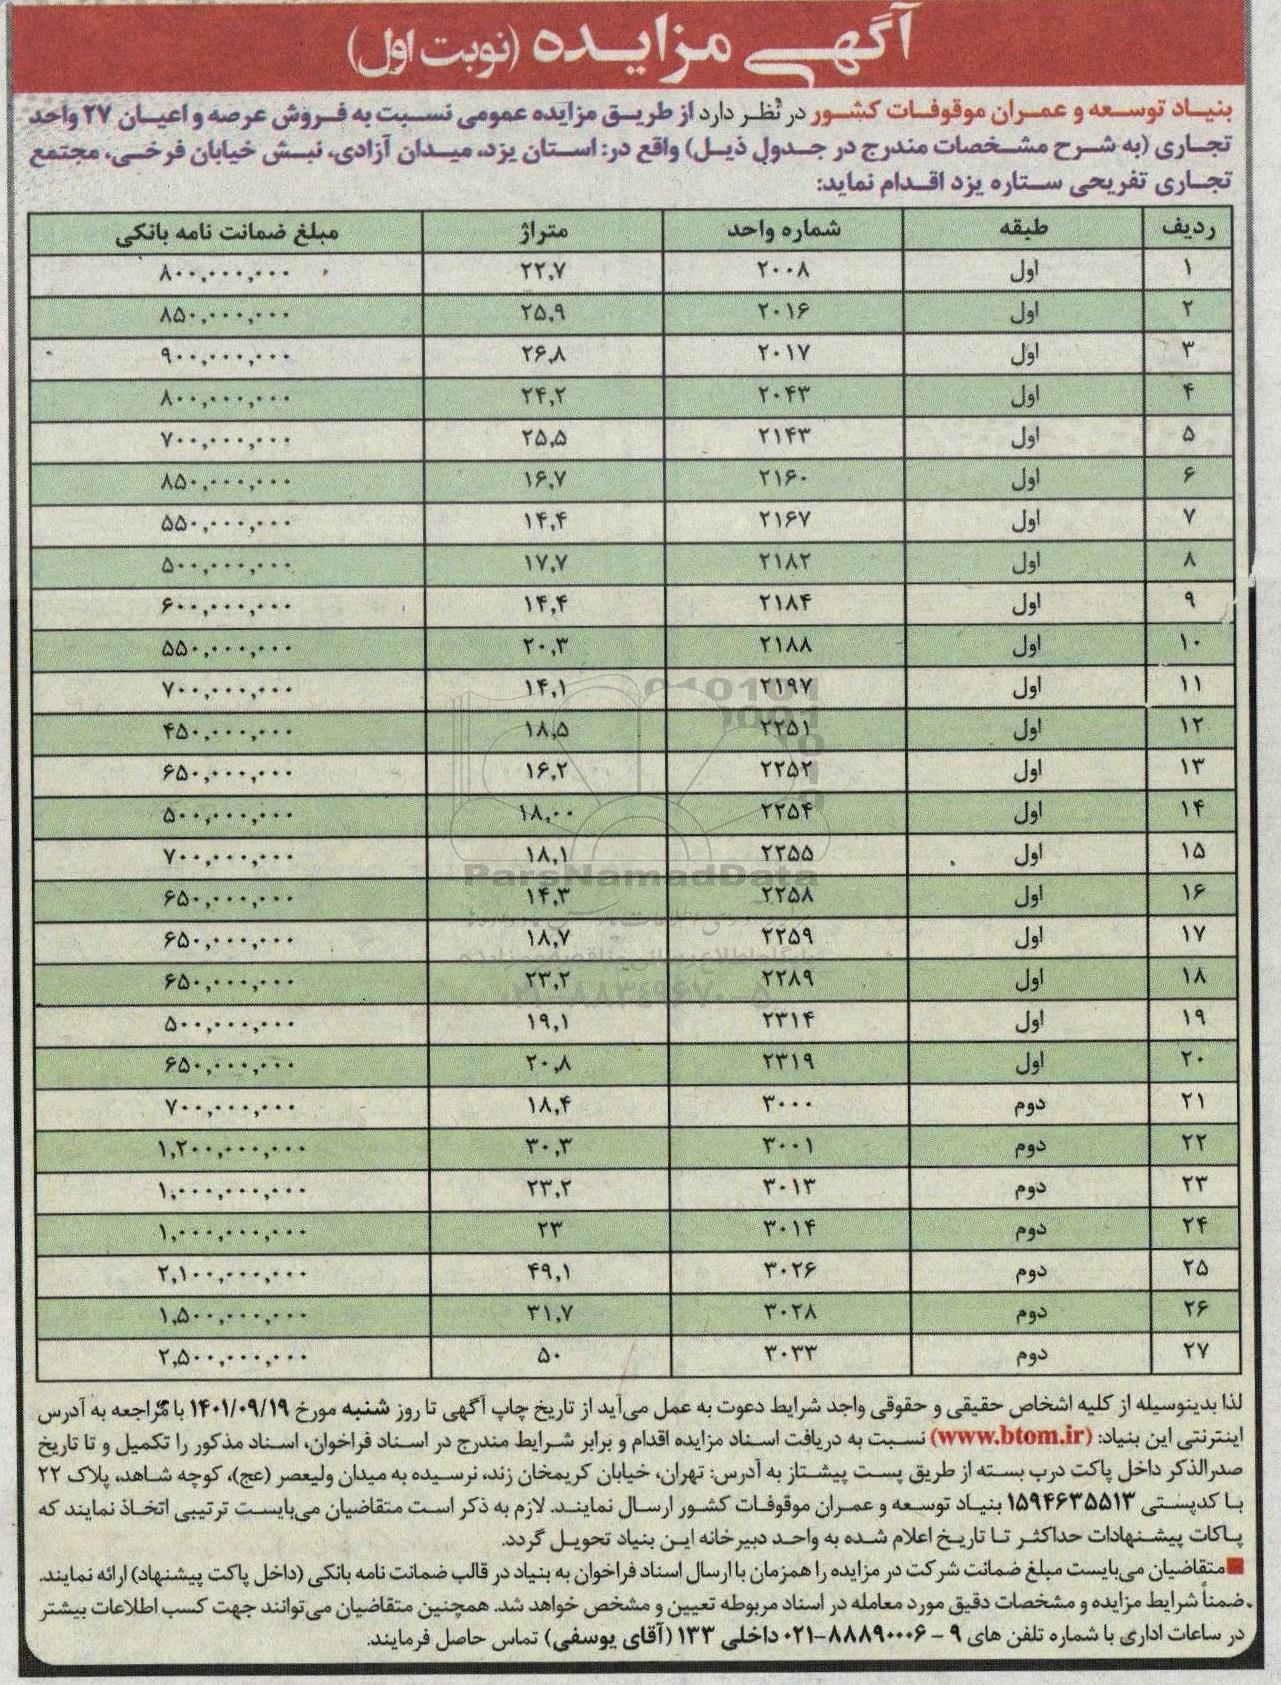 آگهی مزایده (نوبت اول)
بنیاد توسعه و عمران موقوفات کشور در نظر دارد از طریق مزایده عمومی نسبت به فروش عرصه و اعیان ۲۷ واحد
تجاری (به شرح مشخصات مندرج در جدول ذیل) واقع در: استان یزد، میدان آزادی، نبش خیابان فرخی، مجتمع
تجاری تفریحی ستاره یزد اقدام نماید:
ردیف طبقه شماره واحد متراژ مبلغ ضمانت نامه بانکی
۱ اول ۲۰۰۸ ۲۲,۷ ۸۰۰,۰۰۰,۰۰۰
۲ اول ۲۰۱۶ ۲۵,۹ ۸۵۰,۰۰۰,۰۰۰
۳ اول ۲۰۱۷ ۲۶,۸ ۹۰۰,۰۰۰,۰۰۰
۴ اول ۲۰۴۳ ۲۴,۲ ۸۰۰,۰۰۰,۰۰۰
۵ اول ۲۱۴۳ ۲۵,۵ ۷۰۰,۰۰۰,۰۰۰
۶ اول ۲۱۶۰ ۱۶,۷ ۸۵۰,۰۰۰,۰۰۰
۷ اول ۲۱۶۷ ۱۴,۴ ۵۵۰,۰۰۰,۰۰۰
۸ اول ۲۱۸۲ ۱۷,۷ ۵۰۰,۰۰۰,۰۰۰
۹ اول ۲۱۸۴ ۱۴,۴ ۶۰۰,۰۰۰,۰۰۰
۱۰ اول ۲۱۸۸ ۲۰,۳ ۵۵۰,۰۰۰,۰۰۰
۱۱ اول ۲۱۹۷ ۱۴,۱ ۷۰۰,۰۰۰,۰۰۰
۱۲ اول ۲۲۵۱ ۱۸,۵ ۴۵۰,۰۰۰,۰۰۰
۱۳ اول ۲۲۵۲ ۱۶,۲ ۶۵۰,۰۰۰,۰۰۰
۱۴ اول ۲۲۵۴ ۱۸,۰۰ ۵۰۰,۰۰۰,۰۰۰
۱۵ اول ۲۲۵۵ ۱۸,۱ ۷۰۰,۰۰۰,۰۰۰
۱۶ اول ۲۲۵۸ ۱۴,۳ ۶۵۰,۰۰۰,۰۰۰
۱۷ اول ۲۲۵۹ ۱۸,۷ ۶۵۰,۰۰۰,۰۰۰
۱۸ اول ۲۲۸۹ ۲۳,۲ ۶۵۰,۰۰۰,۰۰۰
۱۹ اول ۲۳۱۴ ۱۹,۱ ۵۰۰,۰۰۰,۰۰۰
۲۰ اول ۲۳۱۹ ۲۰,۸ ۶۵۰,۰۰۰,۰۰۰
۲۱ دوم ۳۰۰۰ ۱۸,۴ ۷۰۰,۰۰۰,۰۰۰
۲۲ دوم ۳۰۰۱ ۳۰,۳ ۱,۲۰۰,۰۰۰,۰۰۰
۲۳ دوم ۳۰۱۳ ۲۳,۲ ۱,۰۰۰,۰۰۰,۰۰۰
۲۴ دوم ۳۰۱۴ ۲۳ ۱,۰۰۰,۰۰۰,۰۰۰
۲۵ دوم ۳۰۲۶ ۴۹,۱ ۲,۱۰۰,۰۰۰,۰۰۰
۲۶ دوم ۳۰۲۸ ۳۱,۷ ۱,۵۰۰,۰۰۰,۰۰۰
۲۷ دوم ۳۰۳۳ ۵۰ ۲,۵۰۰,۰۰۰,۰۰۰
ParsNamadData
۰۲۱-۸۸۳۴۹۶۷۰-۵
لذا بدینوسیله از کلیه اشخاص حقیقی و حقوقی واجد شرایط دعوت به عمل می‌آید از تاریخ چاپ آگهی تا روز شنبه مورخ ۱۴۰۱/۰۹/۱۹ با مراجعه به آدرس
اینترنتی این بنیاد: (www.btom.ir) نسبت به دریافت اسناد مزایده اقدام و برابر شرایط مندرج در اسناد فراخوان، اسناد مذکور را تکمیل و تا تاریخ
صدرالذکر داخل پاکت درب بسته از طریق پست پیشتاز به آدرس: تهران، خیابان کریمخان زند، نرسیده به میدان ولیعصر (عج)، کوچه شاهد، پلاک ۲۲
با کدپستی ۱۵۹۴۶۳۵۵۱۳ بنیاد توسعه و عمران موقوفات کشور ارسال نمایند. لازم به ذکر است متقاضیان می‌بایست ترتیبی اتخاذ نمایند که
پاکات پیشنهادات حداکثر تا تاریخ اعلام شده به واحد دبیرخانه این بنیاد تحویل گردد.
■ متقاضیان می‌بایست مبلغ ضمانت شرکت در مزایده را همزمان با ارسال اسناد فراخوان به بنیاد در قالب ضمانت نامه بانکی (داخل پاکت پیشنهاد) ارائه نمایند.
ضمناً شرایط مزایده و مشخصات دقیق مورد معامله در اسناد مربوطه تعیین و مشخص خواهد شد. همچنین متقاضیان می‌توانند جهت کسب اطلاعات بیشتر
در ساعات اداری با شماره تلفن های ۹ - ۸۸۸۹۰۰۰۶-۰۲۱ داخلی ۱۳۳ (آقای یوسفی) تماس حاصل فرمایند.